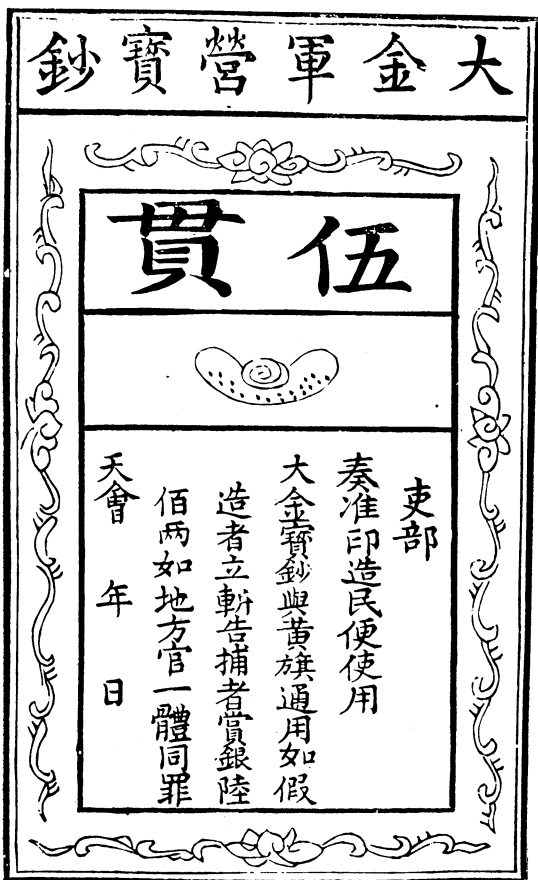 大金軍營寶鈔
伍貫
吏部
奏准印造民便使用
大金寶鈔與黃旗通用如假
造者立斬告捕者賞銀陸
佰两如地方官一體同罪
天會 年 日